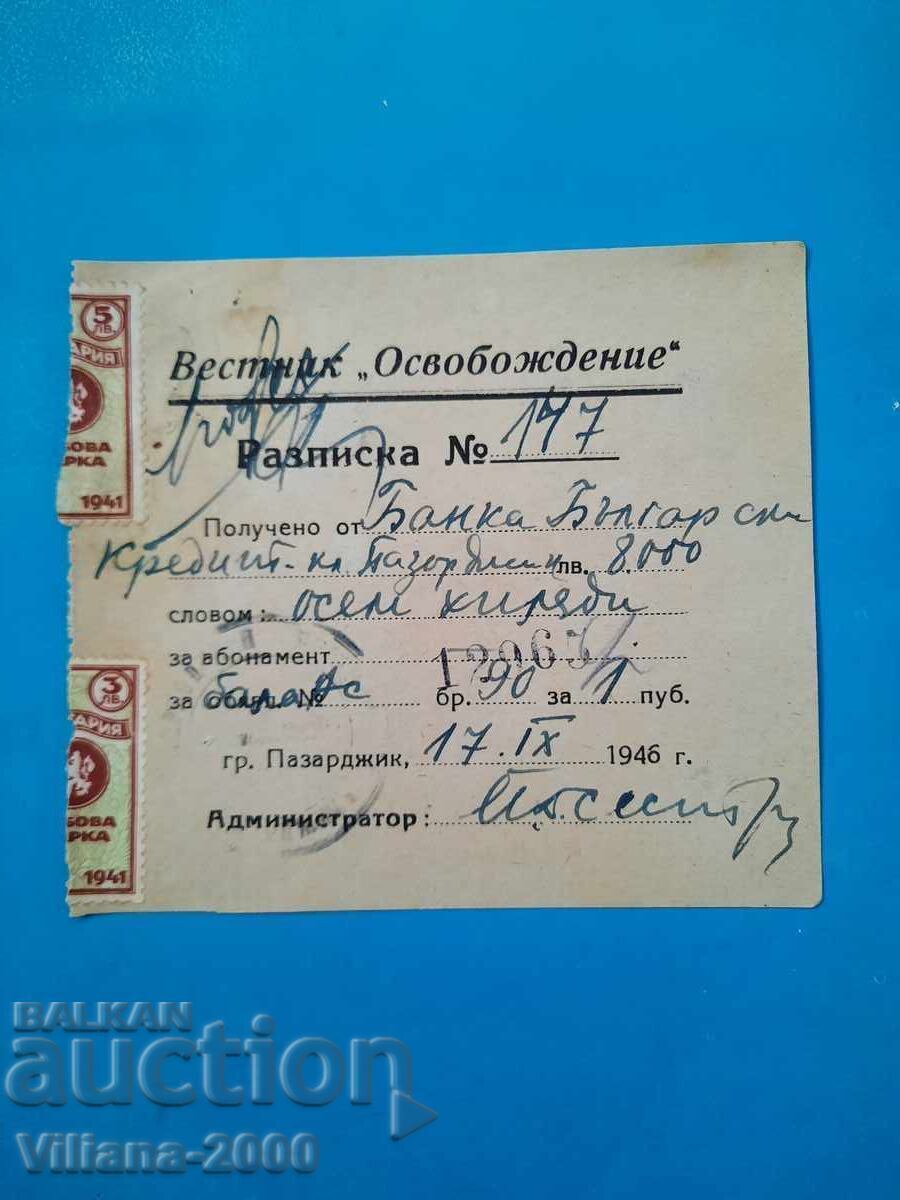 5
ЛВ.
АРИЯ
БОВА
РКА
1941
Вестник „Освобождение“
Разписка № 147
Получено от Банка Български
Кредит - кл. Пазарджик лв. 8.000
словом: осем хиляди
за абонамент
за обявл. № баланс бр. 90 за 1 пуб.
гр. Пазарджик, 17. IX 1946 г.
Администратор:
3
ЛВ.
АРИЯ
БОВА
РКА
1941
BALKAN
auction
Viliana-2000